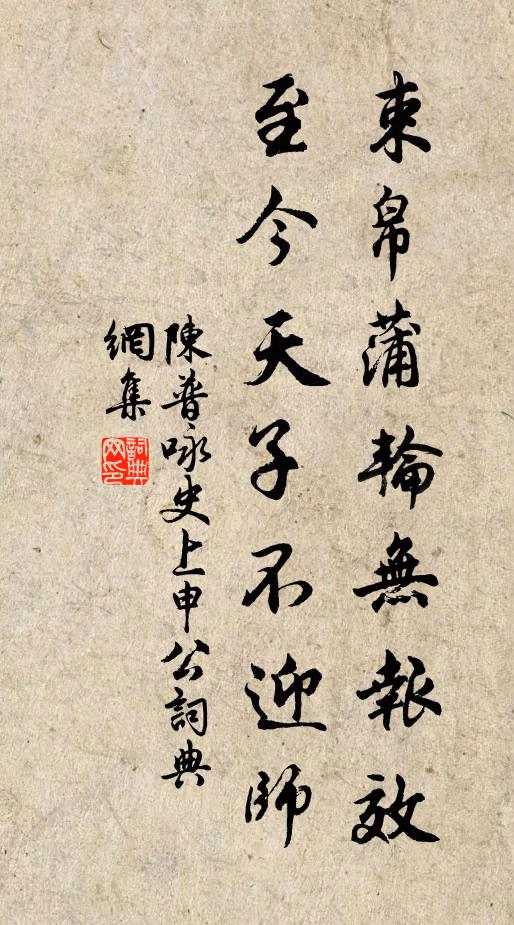 束帛蒲輪無報效
至今天子不迎師
陳普咏史上申公詞典
網集
詞典網印